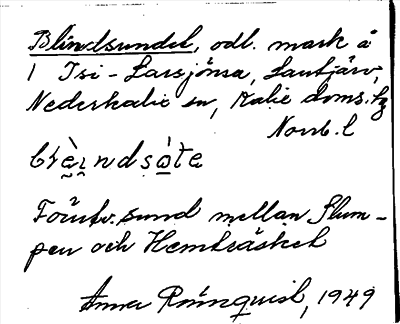 Blindsundet, odl. mark å
1 Isi-Larsjönsa, Lantjärv,
Nederkalix sn, Kalix doms. hg
Norrb. l
Förutv. sund mellan Slum-
pen och Hemträsket
Anna Rönnquist, 1949